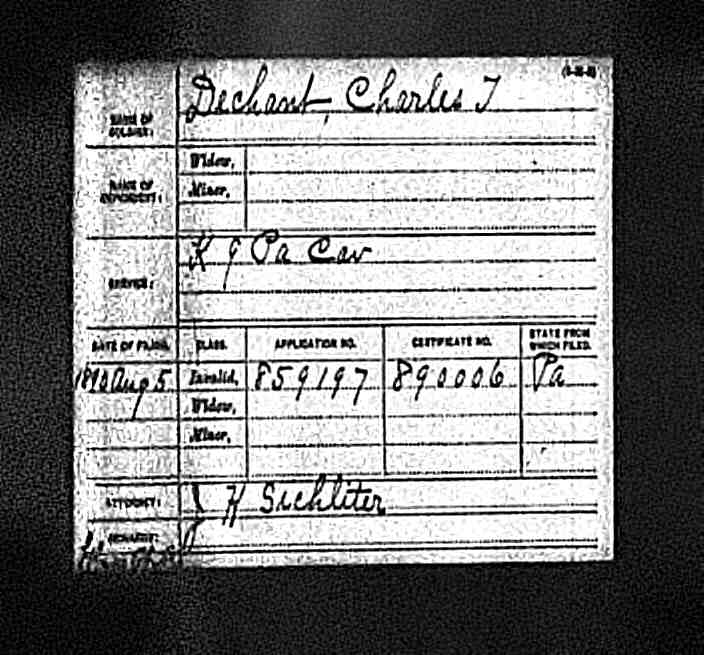 (3-20)
NAME OF SOLDIER:
Dechant, Charles T
NAME OF DEPENDENT:
Widow,
Minor,
SERVICE:
K 9 Pa Cav
DATE OF FILING.
CLASS.
APPLICATION NO.
CERTIFICATE NO.
STATE FROM WHICH FILED.
1890 Aug 5
Invalid,
859197
890006
Pa
Widow,
Minor,
ATTORNEY:
J H Sichliter
REMARKS: